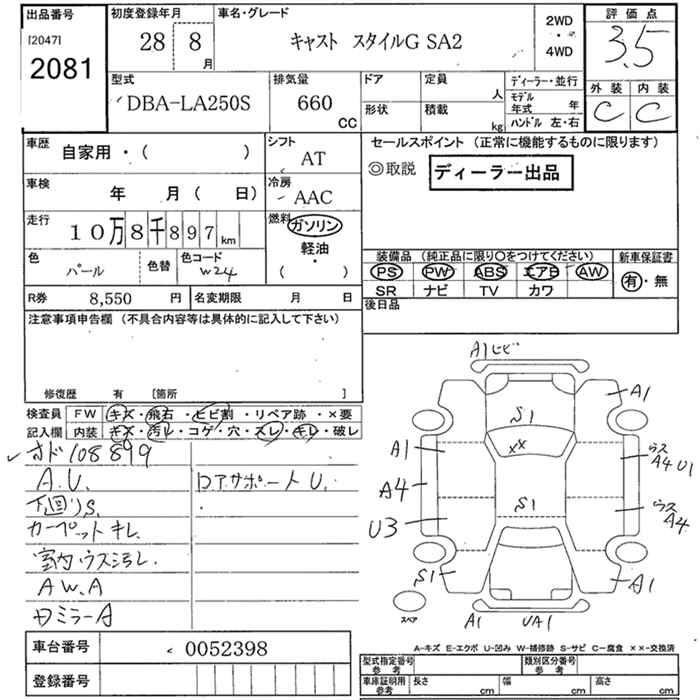 出品番号
[2047]
2081
初度登録年月
28 8 月
車名・グレード
キャスト スタイルG SA2
2WD
・
4WD
評価点
3.5
外装 内装
C C
型式
DBA-LA250S
排気量
660 CC
ドア
形状
定員 人
積載 kg
ディーラー・並行
モデル年式 年
ハンドル 左・右
車歴
自家用・( )
シフト
AT
車検
年 月( 日)
冷房
AAC
走行
10万8千897km
燃料
ガソリン
軽油・
( )
色
パール
色替
色コード
W24
R券 8,550 円
名変期限 月 日
セールスポイント (正常に機能するものに限ります)
◎取説 ディーラー出品
装備品 (純正品に限り〇をつけてください)
PS PW ABS エアB AW
SR ナビ TV カワ
新車保証書
有・無
後日品
注意事項申告欄 (不具合内容等は具体的に記入して下さい)
修復歴 有 [箇所 ]
検査員記入欄
FW キズ・飛石・ヒビ割・リペア跡・×要
内装 キズ・汚レ・コゲ・穴・スレ・キレ・破レ
オド108899
A.U.
下回りS.
カーペットキレ.
室内ウス汚レ.
AW.A
ロミラーA
コアサポートU.
A1ヒビ
A1
S1
××
A1
ウス
A4 U1
A4
S1
ウス
A4
U3
S1
A1
スペア
A1
UA1
A-キズ E-エクボ U-凹み W-補修跡 S-サビ C-腐食 ××-交換済
車台番号 0052398
登録番号
型式指定番号
参考
類別区分番号
参考
車庫証明用
参考
長さ cm
幅 cm
高さ cm